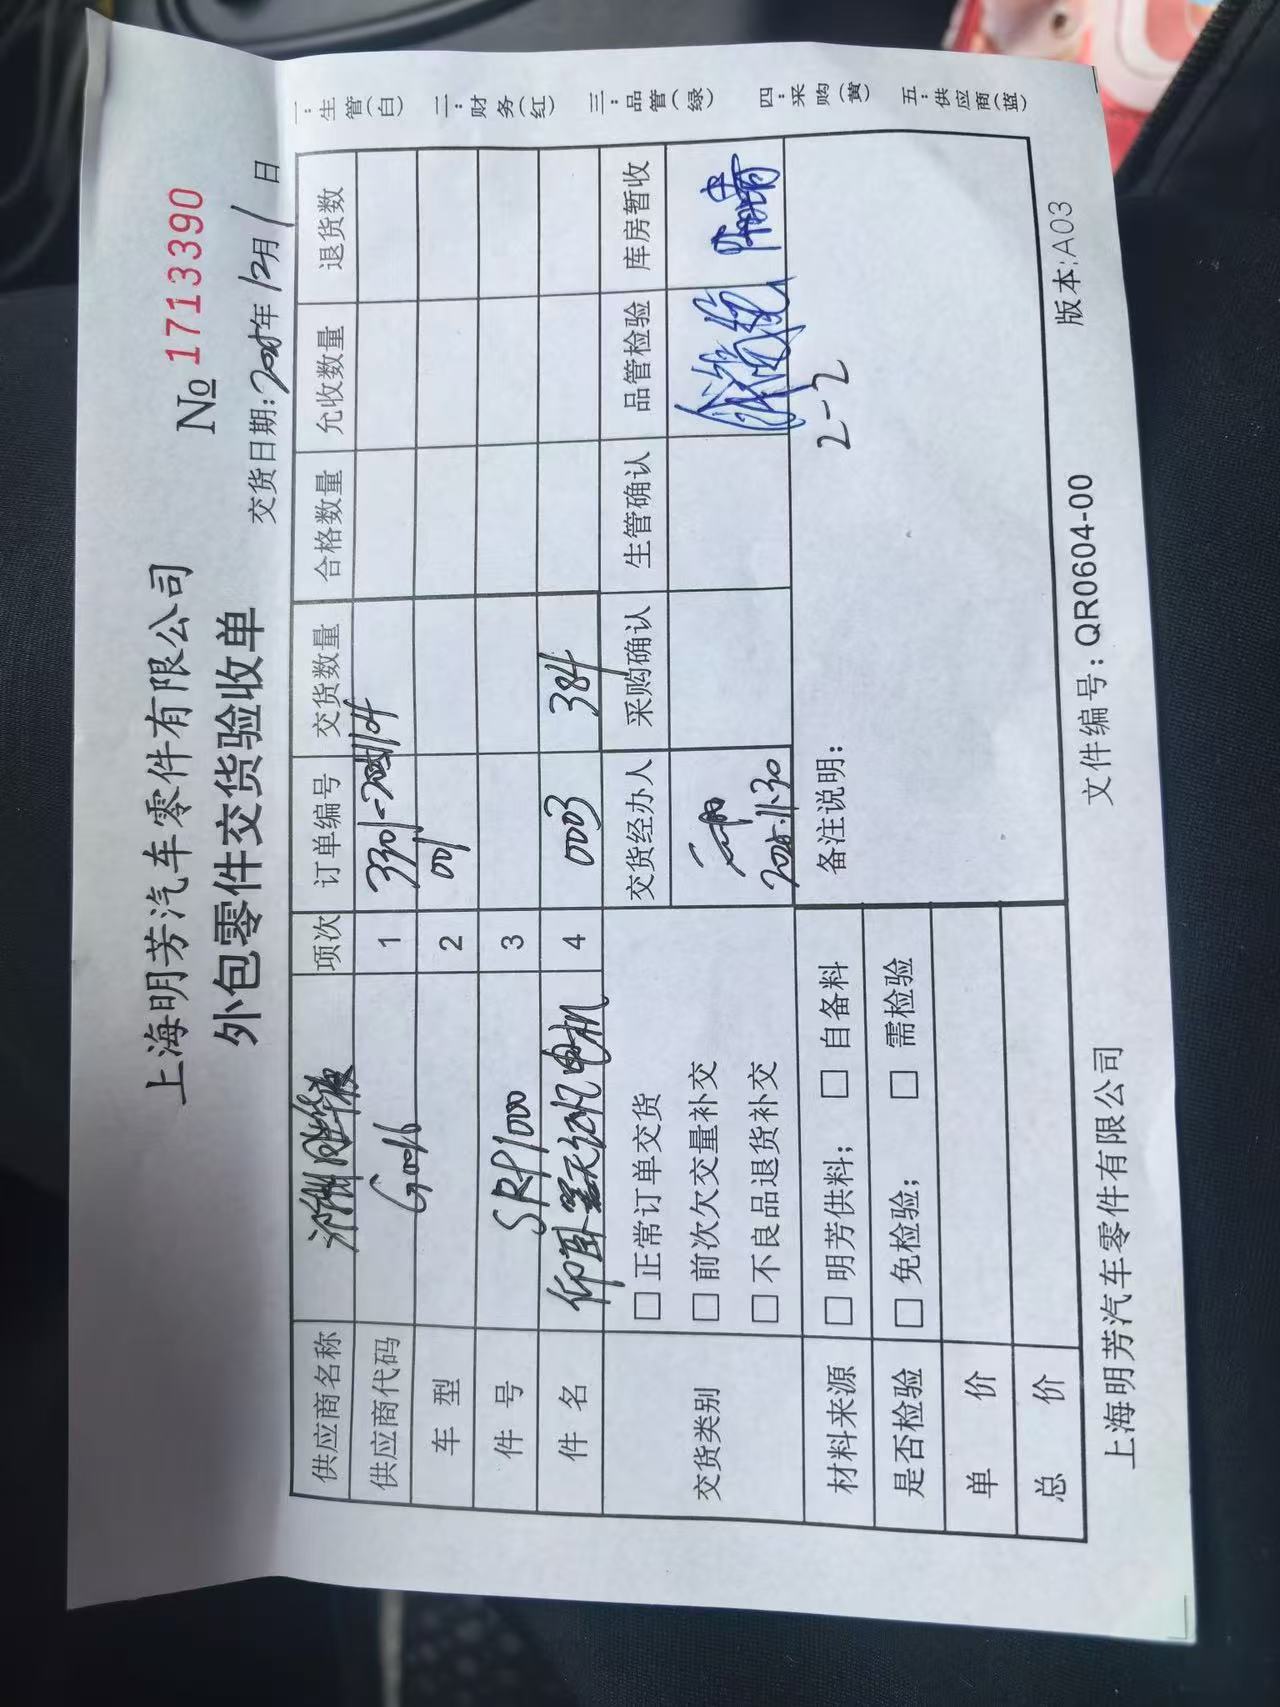 上海明芳汽车零件有限公司
№ 1713390
外包零件交货验收单
交货日期: 2025年12月1日
供应商名称
项次 订单编号 交货数量 合格数量 允收数量 退货数量
供应商代码 1 3301-
车 型 2 001
件 号 SRP1000 3
件 名 仰卧 电机 4 0003 384
交货类别
□ 正常订单交货
□ 前次欠交量补交
□ 不良品退货补交
交货经办人 采购确认 生管确认 品管检验 库房暂收
2025.11.30
材料来源 □ 明芳供料; □ 自备料
是否检验 □ 免检验; □ 需检验
单 价
总 价
备注说明:
2-2
一:生管(白)
二:财务(红)
三:品管(绿)
四:采购(黄)
五:供应商(蓝)
上海明芳汽车零件有限公司 文件编号: QR0604-00 版本:A03